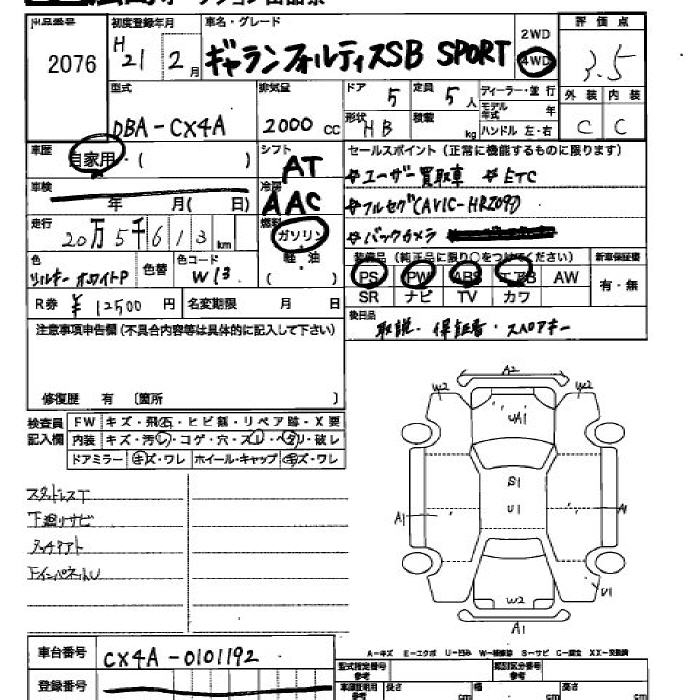 出品番号 初度登録年月 車名・グレード 2WD 評価点
2076 H21 2月 ギャランフォルティスSB SPORT 4WD 3.5
型式 排気量 ドア 5 定員 5人 ディーラー・並行 外装 内装
DBA-CX4A 2000 CC 形状 HB 積載 kg モデル年式 年 ハンドル 左・右 C C
車歴 自家用・( ) シフト AT セールスポイント(正常に機能するものに限ります)
☆ユーザー買取車 ☆ETC
車検 年 月( 日) 冷房 AAC ☆フルセグ(AVIC-HRZ099)
走行 20万5千613km 燃料 ガソリン ☆バックカメラ
軽・油
( )
色 色替 色コード 装備品(純正品に限り○をつけてください) 新車保証書
シルキーホワイトP W13 PS PW ABS エアB AW 有・無
R券 ¥12500円 名変期限 月 日 SR ナビ TV カワ
注意事項申告欄(不具合内容等は具体的に記入して下さい) 後日品
取説・保証書・スペアキー
修復歴 有 〔箇所 〕
検査員記入欄 FW キズ・飛石・ヒビ割・リペア跡・X要
内装 キズ・汚レ・コゲ・穴・スレ・ヘタリ・破レ
ドアミラー キズ・ワレ ホイール・キャップ キズ・ワレ
スタッドレスT
下廻リサビ
タッチアト
A2
W2 W2
UA1
S1
U1
A1 A1
W2 U1
A1
A-キズ E-エクボ U-凹み W-補修跡 S-サビ C-腐食 XX-交換済
車台番号 CX4A-0101192
型式指定番号 参考 類別区分番号 参考
登録番号 車庫証明用 参考 長さ cm 幅 cm 高さ cm